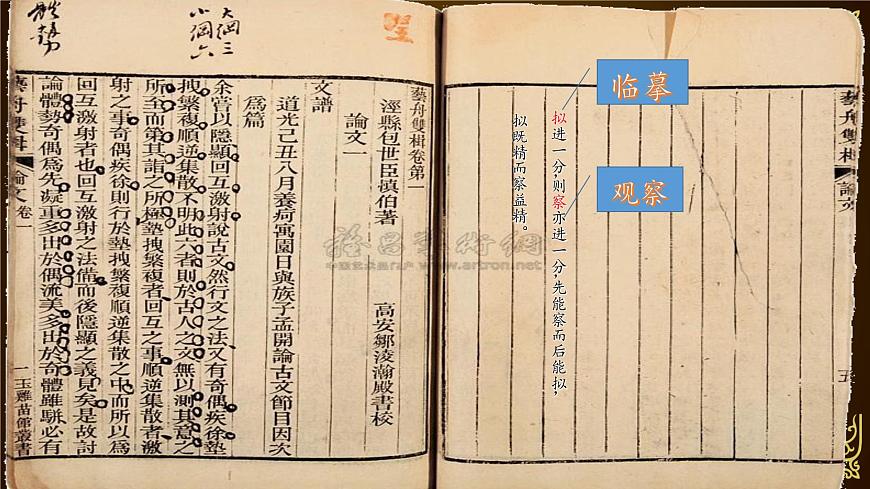 临摹
观察
拟进一分,则察亦进一分,先能察而后能拟,
拟既精而察益精。
藝舟雙楫
論文
五
藝舟雙楫卷第一
涇縣包世臣慎伯著
高安鄒淩瀚殿書校
論文一
文譜
道光己丑八月養疴寓園日與族子孟開論古文節目因次
爲篇
余嘗以隱顯回互激射說古文然行文之法又有奇偶疾徐墊
拽繁複順逆集散不明此六者則於古人之文無以測其意之
所至而第其詣之所極墊拽繁複者回互之事順逆集散者激
射之事奇偶疾徐則行於墊拽繁複順逆集散之中而所以爲
回互激射者也回互激射之法備而後隱顯之義見矣是故討
論體勢奇偶爲先凝重多出於偶流美多出於奇體雖駢必有
藝舟雙楫
論文
卷一
一
玉雞苗館叢書
大綱三
小綱六
體勢
www.artron.net